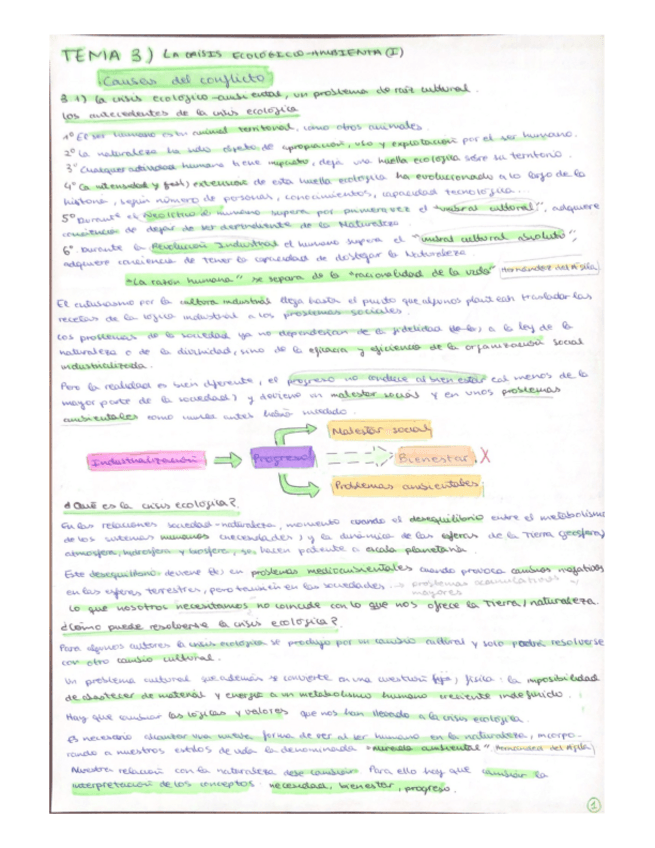 TEMA 3) LA CRISIS ECOLÓGICO-AMBIENTAL (I)
Causas del conflicto
3.1) La crisis ecológico-ambiental, un problema de raíz cultural.
Los antecedentes de la crisis ecológica
1º El ser humano es un animal territorial, como otros animales.
2º La naturaleza ha sido objeto de apropiación, uso y explotación por el ser humano.
3º Cualquier actividad humana tiene impacto, deja una huella ecológica sobre su territorio.
4º La intensidad y extensión de esta huella ecológica ha evolucionado a lo largo de la
historia, según número de personas, conocimientos, capacidad tecnológica...
5º Durante el Neolítico el humano supera por primera vez el "umbral cultural", adquiere
conciencia de dejar de ser dependiente de la Naturaleza.
6º Durante la Revolución Industrial el humano supera el "umbral cultural absoluto",
adquiere conciencia de tener la capacidad de doblegar la Naturaleza
"La razón humana" se separa de la "racionalidad de la vida" Hernández del Águila
El entusiasmo por la cultura industrial llega hasta el punto que algunos plantean trasladar las
recetas de la lógica industrial a los problemas sociales.
Los problemas de la sociedad ya no dependerían de la fidelidad a la ley de la
naturaleza o de la divinidad, sino de la eficacia y eficiencia de la organización social
industrializada.
Pero la realidad es bien diferente, el progreso no conduce al bienestar (al menos de la
mayor parte de la sociedad) y deviene un malestar social y en unos problemas
ambientales como nunca antes había sucedido.
Malestar social
Industrialización
Progreso
Bienestar X
Problemas ambientales
¿Qué es la crisis ecológica?
En las relaciones sociedad-naturaleza, momento cuando el desequilibrio entre el metabolismo
de los sistemas humanos (necesidades) y la dinámica de las esferas de la Tierra (geosfera,
atmosfera, hidrosfera y biosfera) se hacen patente a escala planetaria.
Este desequilibrio deviene en problemas medioambientales cuando provoca cambios negativos
en las esferas terrestres, pero también en las sociedades. → problemas acumulativos y
mayores
Lo que nosotros necesitamos no coincide con lo que nos ofrece la Tierra/naturaleza.
¿Cómo puede resolverse la crisis ecológica?
Para algunos autores la crisis ecológica se produjo por un cambio cultural y solo podrá resolverse
con otro cambio cultural.
Un problema cultural que además se convierte en una cuestión física: la imposibilidad
de abastecer de material y energía a un metabolismo humano creciente indefinido.
Hay que cambiar las lógicas y valores que nos han llevado a la crisis ecológica.
Es necesario adoptar una nueva forma de ver al ser humano en la naturaleza, incorpo-
rando a nuestros estilos de vida la denominada "mirada ambiental" Hernández del Águila
Nuestra relación con la naturaleza debe cambiar. Para ello hay que cambiar la
interpretación de los conceptos: necesidad, bienestar, progreso.
1